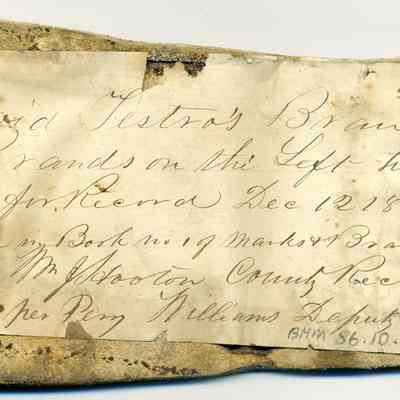 id Testro's Bran
rands on the Left h
for Record Dec 12 18
in Book no 1 of Marks & Bra
Wm J Hooton County Rec
per Perry Williams Deputy
BHM 86.10.